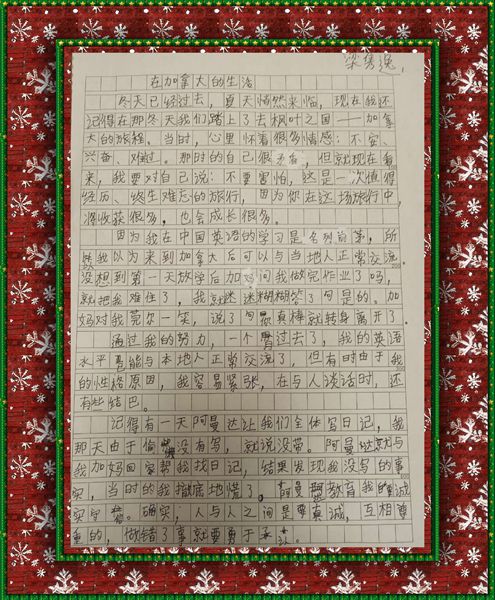 梁隽逸
在加拿大的生活
冬天已经过去，夏天悄然来临，现在我还
记得在那冬天我们踏上了去枫叶之国——加拿
大的旅程。当时，心里怀着很多情感：不安、
兴奋、难过。那时的自己很矛盾，但就现在看
来，我要对自己说：不要害怕，这是一次值得
经历、终生难忘的旅行，因为你在这场旅行中，
得收获很多，也会成长很多。
因为我在中国英语的学习是名列前茅，所
以我以为来到加拿大后可以与当地人正常交流
没想到第一天放学后加妈问我做完作业了吗，
就把我难住了，我就迷迷糊糊答了句是的。加
妈对我莞尔一笑，说了句真棒就转身离开了。
通过我的努力，一个月过去了，我的英语
水平已能与本地人正常交流了，但有时由于我
的性格原因，我容易紧张，在与人谈话时，还
有些结巴。
记得有一天阿曼达让我们全体写日记，我
那天由于偷懒没有写，就说没带。阿曼达就与
我加妈回家帮我找日记，结果发现我没写的事
实，当时的我彻底地慌了。阿曼达教育我诚
实守。确实，人与人之间是要真诚，互相尊
重的，做错了事就要勇于承认